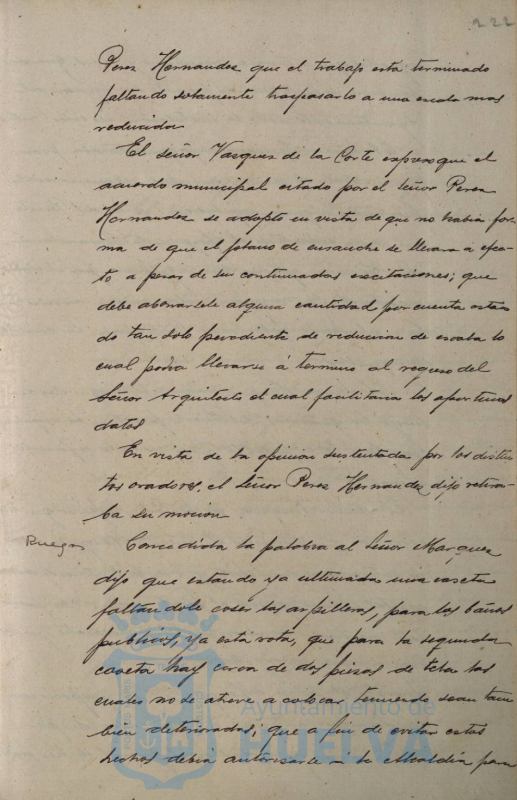 222
Perez Hernandez que el trabajo está terminado
faltando solamente traspasarlo a una escala mas
reducida
El señor Vasquez de la Corte expreso que el
acuerdo municipal citado por el señor Perez
Hernandez se adopto en vista de que no habia for
ma de que el plano de ensanche se llevara a efec
to a pesar de sus continuadas excitaciones; que
debe abonarsele alguna cantidad por cuenta estan
do tan solo pendiente de reduccion de escala lo
cual podia llevarse á termino al regreso del
Señor Arquitecto el cual facilitaria los oportunos
datos
En vista de la opinion sustentada por los distin
tos oradores, el Señor Perez Hernandez dijo retira
ba su mocion
Ruegos
Concedida la palabra al Señor Marquez
dijo que estando ya ultimada una caseta
faltandole coser las arpilleras, para los baños
publicos, ya está rota, que para la segunda
caseta hay cerca de dos piezas de tela las
cuales no se atreve a colocar temiendo sean tam
bien deterioradas; que a fin de evitar estos
hechos debia autorizarse a la Alcaldía para
Ayuntamiento de
HUELVA